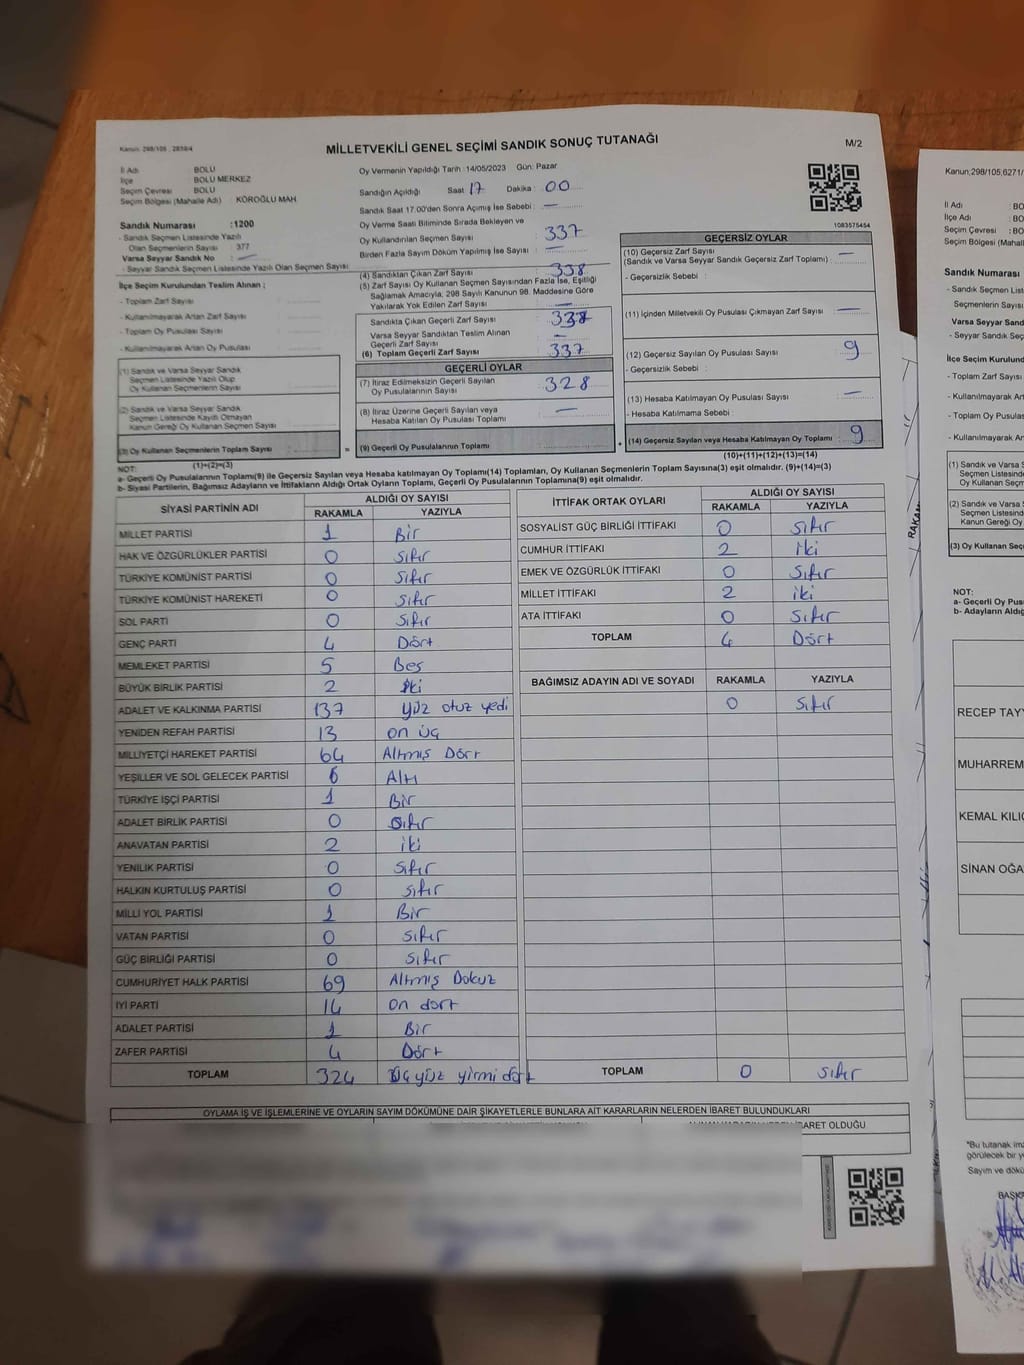 Kanun: 298/105, 2839/4
MİLLETVEKİLİ GENEL SEÇİMİ SANDIK SONUÇ TUTANAĞI
M/2
İl Adı BOLU
İlçe BOLU MERKEZ
Seçim Çevresi BOLU
Seçim Bölgesi (Mahalle Adı) : KÖROĞLU MAH
Sandık Numarası :1200
- Sandık Seçmen Listesinde Yazılı
Olan Seçmenlerin Sayısı 377
Varsa Seyyar Sandık No : —
- Seyyar Sandık Seçmen Listesinde Yazılı Olan Seçmen Sayısı
İlçe Seçim Kurulundan Teslim Alınan ;
- Toplam Zarf Sayısı
- Kullanılmayarak Artan Zarf Sayısı
- Toplam Oy Pusulası Sayısı
- Kullanılmayarak Artan Oy Pusulası
(1) Sandık ve Varsa Seyyar Sandık
Seçmen Listesinde Yazılı Olup
Oy Kullanan Seçmenlerin Sayısı
(2) Sandık ve Varsa Seyyar Sandık
Seçmen Listesinde Kayıtlı Olmayan
Kanun Gereği Oy Kullanan Seçmen Sayısı
(3) Oy Kullanan Seçmenlerin Toplam Sayısı
(1)+(2)=(3)
Oy Vermenin Yapıldığı Tarih :14/05/2023 Gün: Pazar
Sandığın Açıldığı Saat 17 Dakika : 00
Sandık Saat 17:00'den Sonra Açımış İse Sebebi : —
Oy Verme Saati Bitiminde Sırada Bekleyen ve
Oy Kullandırılan Seçmen Sayısı : 337
Birden Fazla Sayım Döküm Yapılmış İse Sayısı : —
(4) Sandıktan Çıkan Zarf Sayısı 338
(5) Zarf Sayısı Oy Kullanan Seçmen Sayısından Fazla İse, Eşitliği
Sağlamak Amacıyla, 298 Sayılı Kanunun 98. Maddesine Göre
Yakılarak Yok Edilen Zarf Sayısı —
Sandıkta Çıkan Geçerli Zarf Sayısı
Varsa Seyyar Sandıktan Teslim Alınan
Geçerli Zarf Sayısı —
(6) Toplam Geçerli Zarf Sayısı 337
GEÇERLİ OYLAR
(7) İtiraz Edilmeksizin Geçerli Sayılan
Oy Pusulalarının Sayısı : 328
(8) İtiraz Üzerine Geçerli Sayılan veya
Hesaba Katılan Oy Pusulası Toplamı : —
= (9) Geçerli Oy Pusulalarının Toplamı
1083575454
GEÇERSİZ OYLAR
(10) Geçersiz Zarf Sayısı
(Sandık ve Varsa Seyyar Sandık Geçersiz Zarf Toplamı) : —
- Geçersizlik Sebebi :
(11) İçinden Milletvekili Oy Pusulası Çıkmayan Zarf Sayısı : —
(12) Geçersiz Sayılan Oy Pusulası Sayısı : 9
- Geçersizlik Sebebi :
(13) Hesaba Katılmayan Oy Pusulası Sayısı : —
- Hesaba Katılmama Sebebi :
+ (14) Geçersiz Sayılan veya Hesaba Katılmayan Oy Toplamı : 9
(10)+(11)+(12)+(13)=(14)
NOT:
a- Geçerli Oy Pusulalarının Toplamı(9) ile Geçersiz Sayılan veya Hesaba katılmayan Oy Toplamı(14) Toplamları, Oy Kullanan Seçmenlerin Toplam Sayısına(3) eşit olmalıdır. (9)+(14)=(3)
b- Siyasi Partilerin, Bağımsız Adayların ve İttifakların Aldığı Ortak Oyların Toplamı, Geçerli Oy Pusulalarının Toplamına(9) eşit olmalıdır.
SİYASİ PARTİNİN ADI ALDIĞI OY SAYISI
RAKAMLA YAZIYLA
MİLLET PARTİSİ 1 Bir
HAK VE ÖZGÜRLÜKLER PARTİSİ 0 Sıfır
TÜRKİYE KOMÜNİST PARTİSİ 0 Sıfır
TÜRKİYE KOMÜNİST HAREKETİ 0 Sıfır
SOL PARTİ 0 Sıfır
GENÇ PARTİ 4 Dört
MEMLEKET PARTİSİ 5 Beş
BÜYÜK BİRLİK PARTİSİ 2 iki
ADALET VE KALKINMA PARTİSİ 137 yüz otuz yedi
YENİDEN REFAH PARTİSİ 13 on üç
MİLLİYETÇİ HAREKET PARTİSİ 64 Altmış Dört
YEŞİLLER VE SOL GELECEK PARTİSİ 6 Altı
TÜRKİYE İŞÇİ PARTİSİ 1 Bir
ADALET BİRLİK PARTİSİ 0 Sıfır
ANAVATAN PARTİSİ 2 iki
YENİLİK PARTİSİ 0 Sıfır
HALKIN KURTULUŞ PARTİSİ 0 Sıfır
MİLLİ YOL PARTİSİ 1 Bir
VATAN PARTİSİ 0 Sıfır
GÜÇ BİRLİĞİ PARTİSİ 0 Sıfır
CUMHURİYET HALK PARTİSİ 69 Altmış Dokuz
İYİ PARTİ 14 on dört
ADALET PARTİSİ 1 Bir
ZAFER PARTİSİ 4 Dört
TOPLAM 324 Üç yüz yirmi dört
İTTİFAK ORTAK OYLARI ALDIĞI OY SAYISI
RAKAMLA YAZIYLA
SOSYALİST GÜÇ BİRLİĞİ İTTİFAKI 0 Sıfır
CUMHUR İTTİFAKI 2 iki
EMEK VE ÖZGÜRLÜK İTTİFAKI 0 Sıfır
MİLLET İTTİFAKI 2 iki
ATA İTTİFAKI 0 Sıfır
TOPLAM 4 Dört
BAĞIMSIZ ADAYIN ADI VE SOYADI RAKAMLA YAZIYLA
0 Sıfır
TOPLAM 0 Sıfır
OYLAMA İŞ VE İŞLEMLERİNE VE OYLARIN SAYIM DÖKÜMÜNE DAİR ŞİKAYETLERLE BUNLARA AİT KARARLARIN NELERDEN İBARET BULUNDUKLARI
İBARET OLDUĞU
Kanun;298/105,6271/
İl Adı : BO
İlçe Adı : BO
Seçim Çevresi : BO
Seçim Bölgesi (Mah
Sandık Numarası
- Sandık Seçmen List
Seçmenlerin Sayısı
Varsa Seyyar Sandı
- Seyyar Sandık Seçm
İlçe Seçim Kurulund
- Toplam Zarf Sayısı
- Kullanılmayarak Art
- Toplam Oy Pusulas
- Kullanılmayarak Art
(1) Sandık ve Varsa S
Seçmen Listesinde
Oy Kullanan Seçme
(2) Sandık ve Varsa S
Seçmen Listesinde
Kanun Gereği Oy K
(3) Oy Kullanan Seçmen
NOT:
a- Geçerli Oy Pus
b- Adayların Aldığ
RAKAM
RECEP TAYY
MUHARREM
KEMAL KILIÇ
SİNAN OĞA
*Bu tutanak ima
görülecek bir ye
Sayım ve dökü
BAŞK